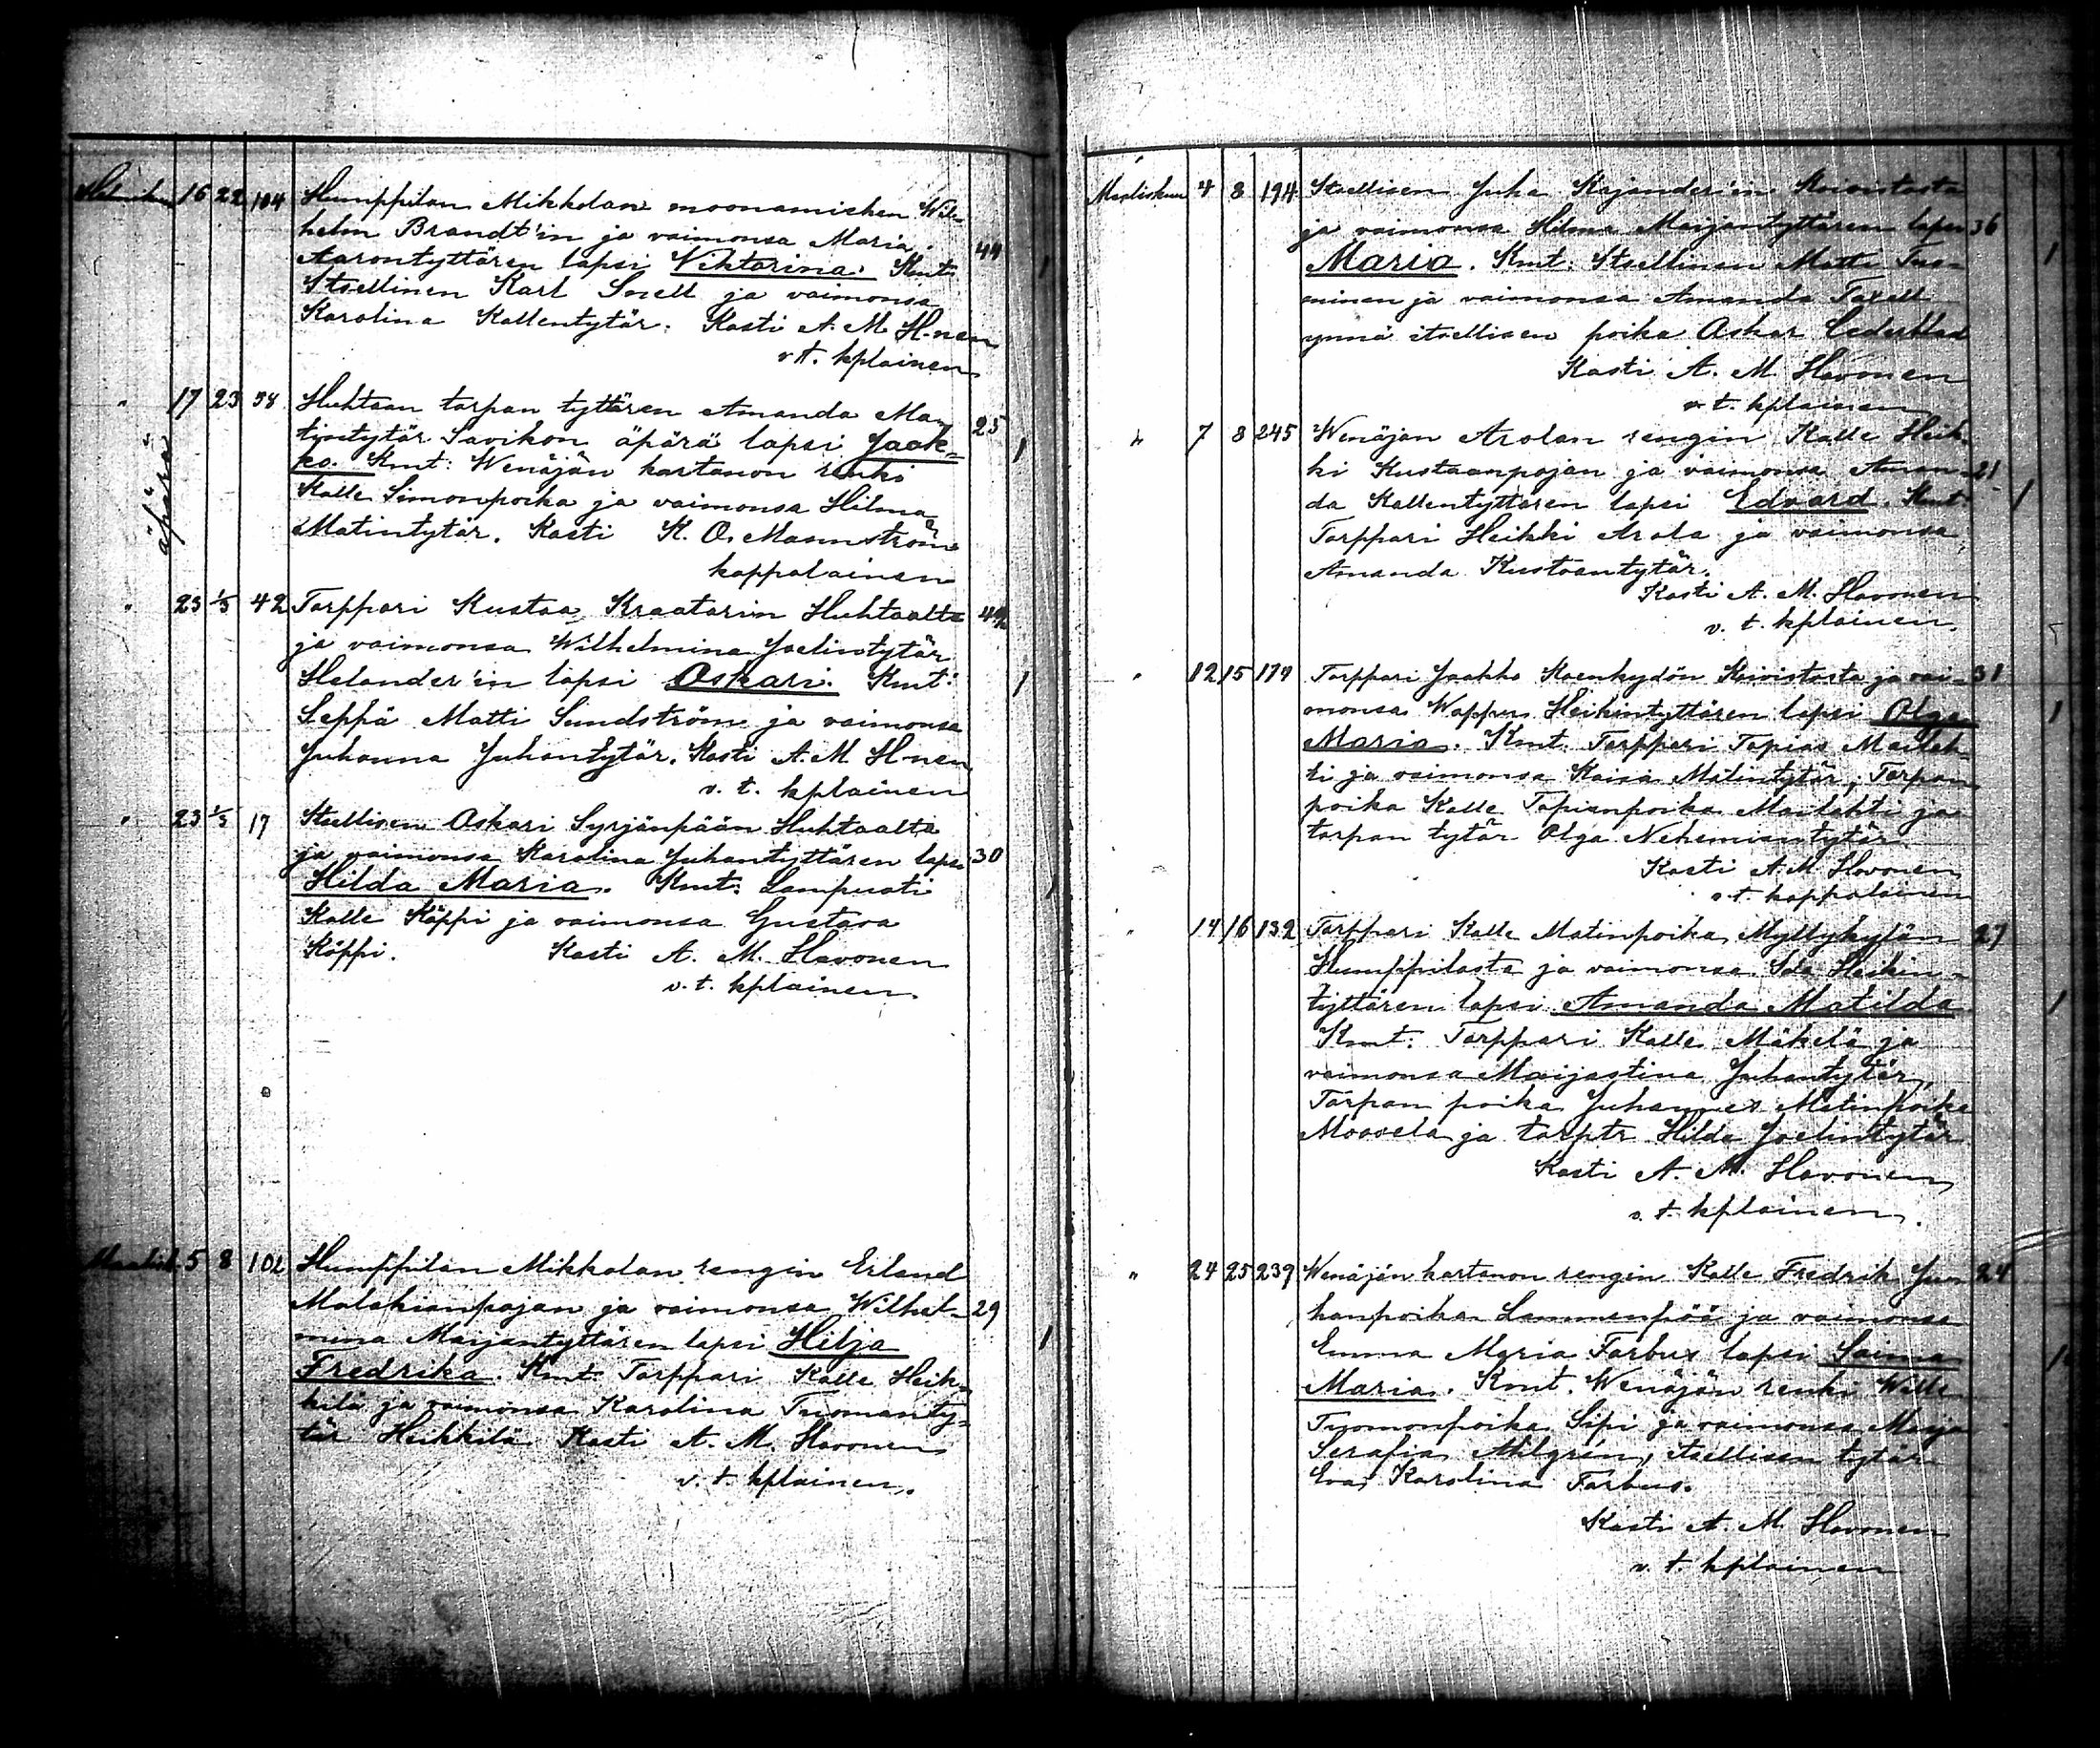 Helmikuu 16 22 104 Humppilan Mikkolan moonamiehen Wil-
helm Brandt'in ja vaimonsa Maria
Aarontyttären lapsi Viktorina. Kmt: 44
Itsellinen Karl Snell ja vaimonsa
Karolina Kallentytär. Kasti A. M. H-nen
v. t. kplainen
" 17 23 58 Huhtaan torpan tyttären Amanda Ma- 25
tintytär Savikon äpärä lapsi Jaak-
ko. Kmt: Wenäjän kartanon renki
Kalle Simonpoika ja vaimonsa Hilma
Matintytär. Kasti K. O. Maunström
kappalainen
äpärä
" 23 1/3 42 Torppari Kustaa Kraatarin Huhtaalta
ja vaimonsa Wilhelmina Joelintytär
Helander'in lapsi Oskari. Kmt:
Seppä Matti Sundström ja vaimonsa
Juhanna Juhantytär. Kasti A. M. H-nen
v. t. kplainen
" 23 1/3 17 Itsellisen Oskari Syrjänpään Huhtaalta
ja vaimonsa Karolina Juhantyttären lapsi 30
Hilda Maria. Kmt: Lampuoti
Kalle Köppi ja vaimonsa Gustava
Köppi. Kasti A. M. Havonen
v. t. kplainen.
Maalisk. 5 8 102 Humppilan Mikkolan rengin Erland
Malakianpojan ja vaimonsa Wilhel- 29
mina Maijantyttären lapsi Hilja
Fredrika. Kmt Torppari Kalle Heik-
kilä ja vaimonsa Karolina Tuomanty-
tär Heikkilä. Kasti A. M. Havonen
v. t. kplainen.
Maaliskuu 4 8 194 Itsellisen Juha Kajander'in Koivistosta
ja vaimonsa Hilma Maijantyttären lapsi 36
Maria. Kmt: Itsellinen Matti Tuo-
minen ja vaimonsa Amanda Taxell
ynnä itsellisen poika Oskar Cederblad
Kasti A. M. Havonen
v. t. kplainen
" 7 8 245 Wenäjän Arolan rengin Kalle Heik-
ki Kustaanpojan ja vaimonsa Aman- 21
da Kallentyttären lapsi Edvard. Kmt:
Torppari Heikki Arola ja vaimonsa
Amanda Kustaantytär.
Kasti A. M. Havonen
v. t. kplainen.
" 12 15 179 Torppari Jaakko Koenkydön Koivistosta ja vai- 31
monsa Wappu Heikintyttären lapsi Olga
Maria. Kmt: Torppari Topias Mailah-
ti ja vaimonsa Kaisa Matintytär, Torpan
poika Kalle Topianpoika Mailahti ja
torpan tytär Olga Nehemiantytär
Kasti A. M. Havonen
v. t. kappalainen
" 14 16 132 Torppari Kalle Matinpoika Myllykylän 27
Humppilasta ja vaimonsa Ida Heikin-
tyttären lapsi Amanda Matilda
Kmt: Torppari Kalle Mäkelä ja
vaimonsa Maijastina Juhantytär,
Torpan poika Juhannes Matinpoika
ja torptr Hilda Joelintytär
Kasti A. M. Havonen
v. t. kplainen.
" 24 25 239 Wenäjän kartanon rengin Kalle Fredrik Ju- 24
hanpoika Lammenpää ja vaimonsa
Emma Maria Farbus lapsi Saima
Maria. Kmt. Wenäjän renki Wille
Tuomonpoika Sipi ja vaimonsa Maija
Serafia Milgrén, itsellisen tytär
Eva Karolina Farbus.
Kasti A. M. Havonen
v. t. kplainen